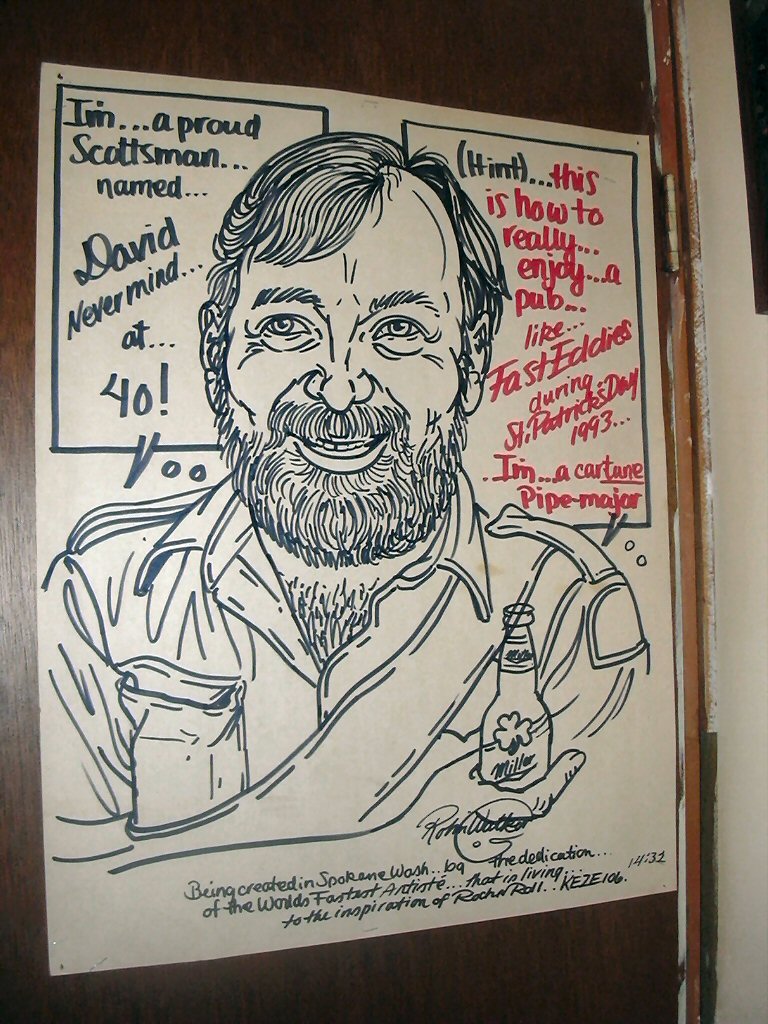 I'm...a proud
Scottsman...
named...
David
Nevermind...
at...
40!
(Hint)...this
is how to
really...
enjoy...a
pub...
like...
Fast Eddies
during
St. Patricks Day
1993...
I'm...a cartune
Pipe-major
Miller
Miller
Robin Walker
Being created in Spokane Wash...by the dedication...
of the Worlds Fastest Artiste...that is living...
to the inspiration of Rock n Roll...KEZE 106.
14:32